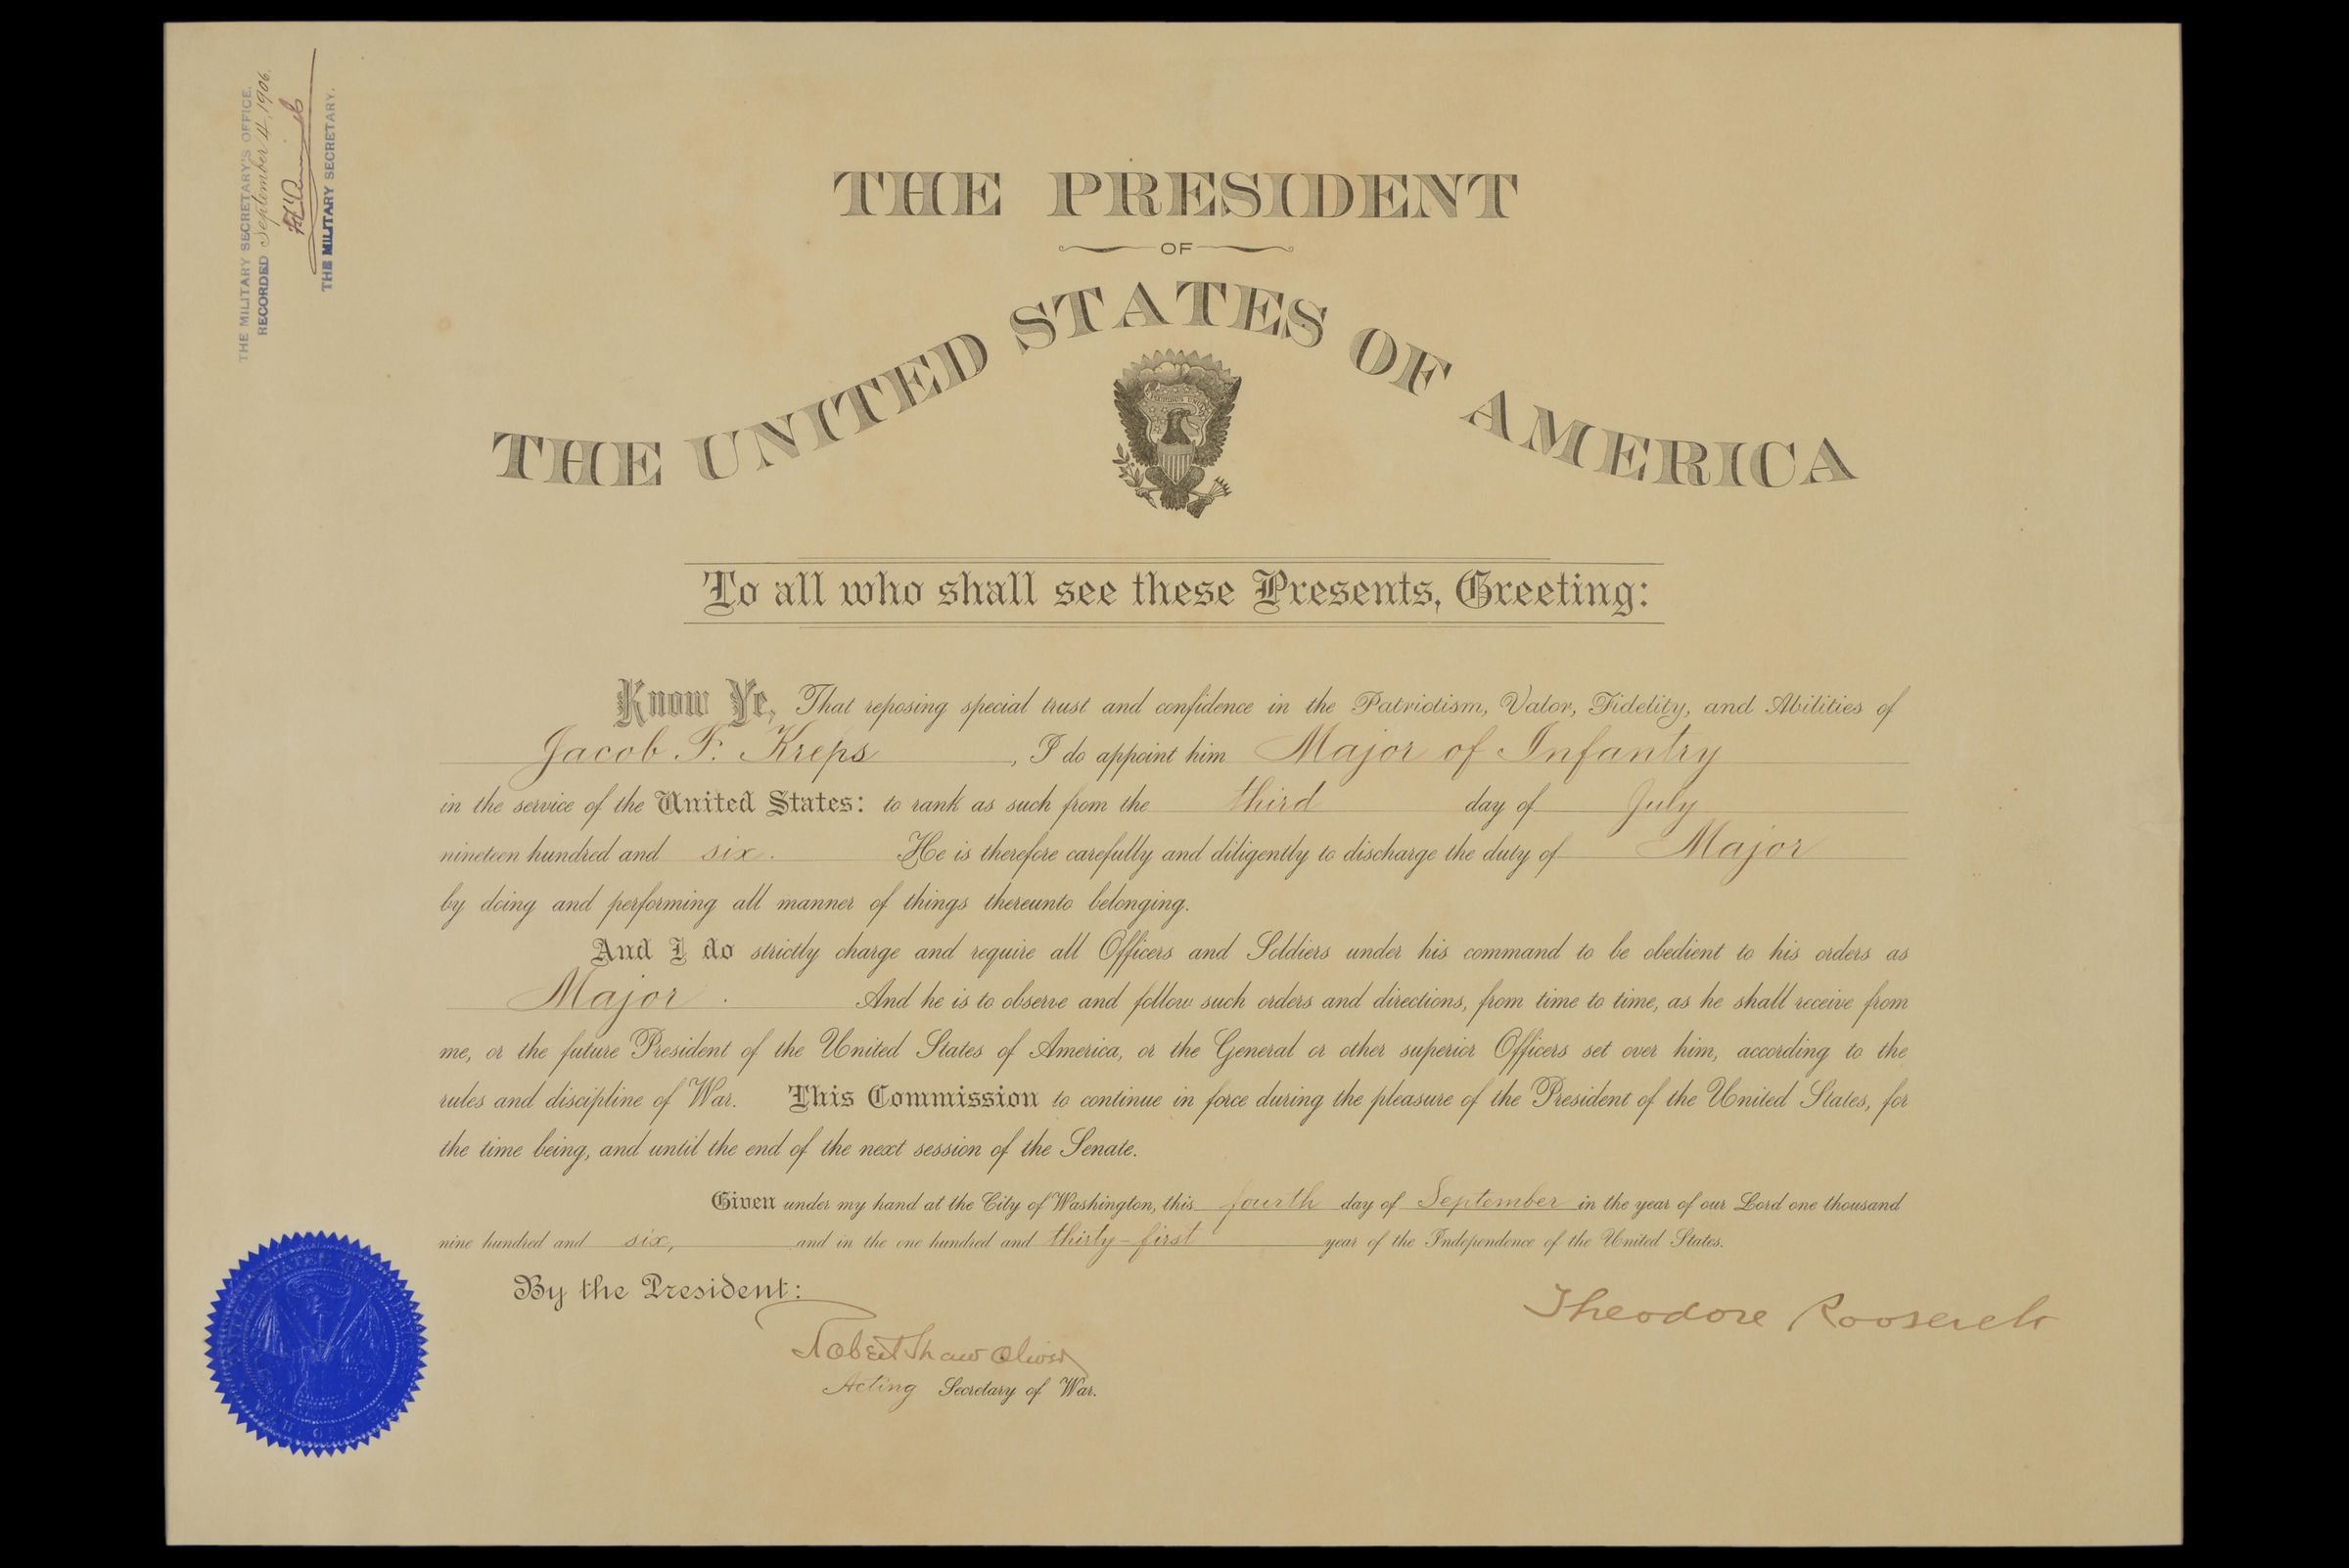 THE MILITARY SECRETARY'S OFFICE.
RECORDED September 4, 1906.
THE MILITARY SECRETARY.
THE PRESIDENT
OF
THE UNITED STATES OF AMERICA
To all who shall see these Presents, Greeting:
Know Ye, That reposing special trust and confidence in the Patriotism, Valor, Fidelity, and Abilities of
Jacob F. Kreps, I do appoint him Major of Infantry
in the service of the United States: to rank as such from the third day of July
nineteen hundred and six. He is therefore carefully and diligently to discharge the duty of Major
by doing and performing all manner of things thereunto belonging.
And I do strictly charge and require all Officers and Soldiers under his command to be obedient to his orders as
Major. And he is to observe and follow such orders and directions, from time to time, as he shall receive from
me, or the future President of the United States of America, or the General or other superior Officers set over him, according to the
rules and discipline of War. This Commission to continue in force during the pleasure of the President of the United States, for
the time being, and until the end of the next session of the Senate.
Given under my hand at the City of Washington, this fourth day of September in the year of our Lord one thousand
nine hundred and six, and in the one hundred and thirty-first year of the Independence of the United States.
By the President:
Theodore Roosevelt
Robert Shaw Oliver
Acting Secretary of War.